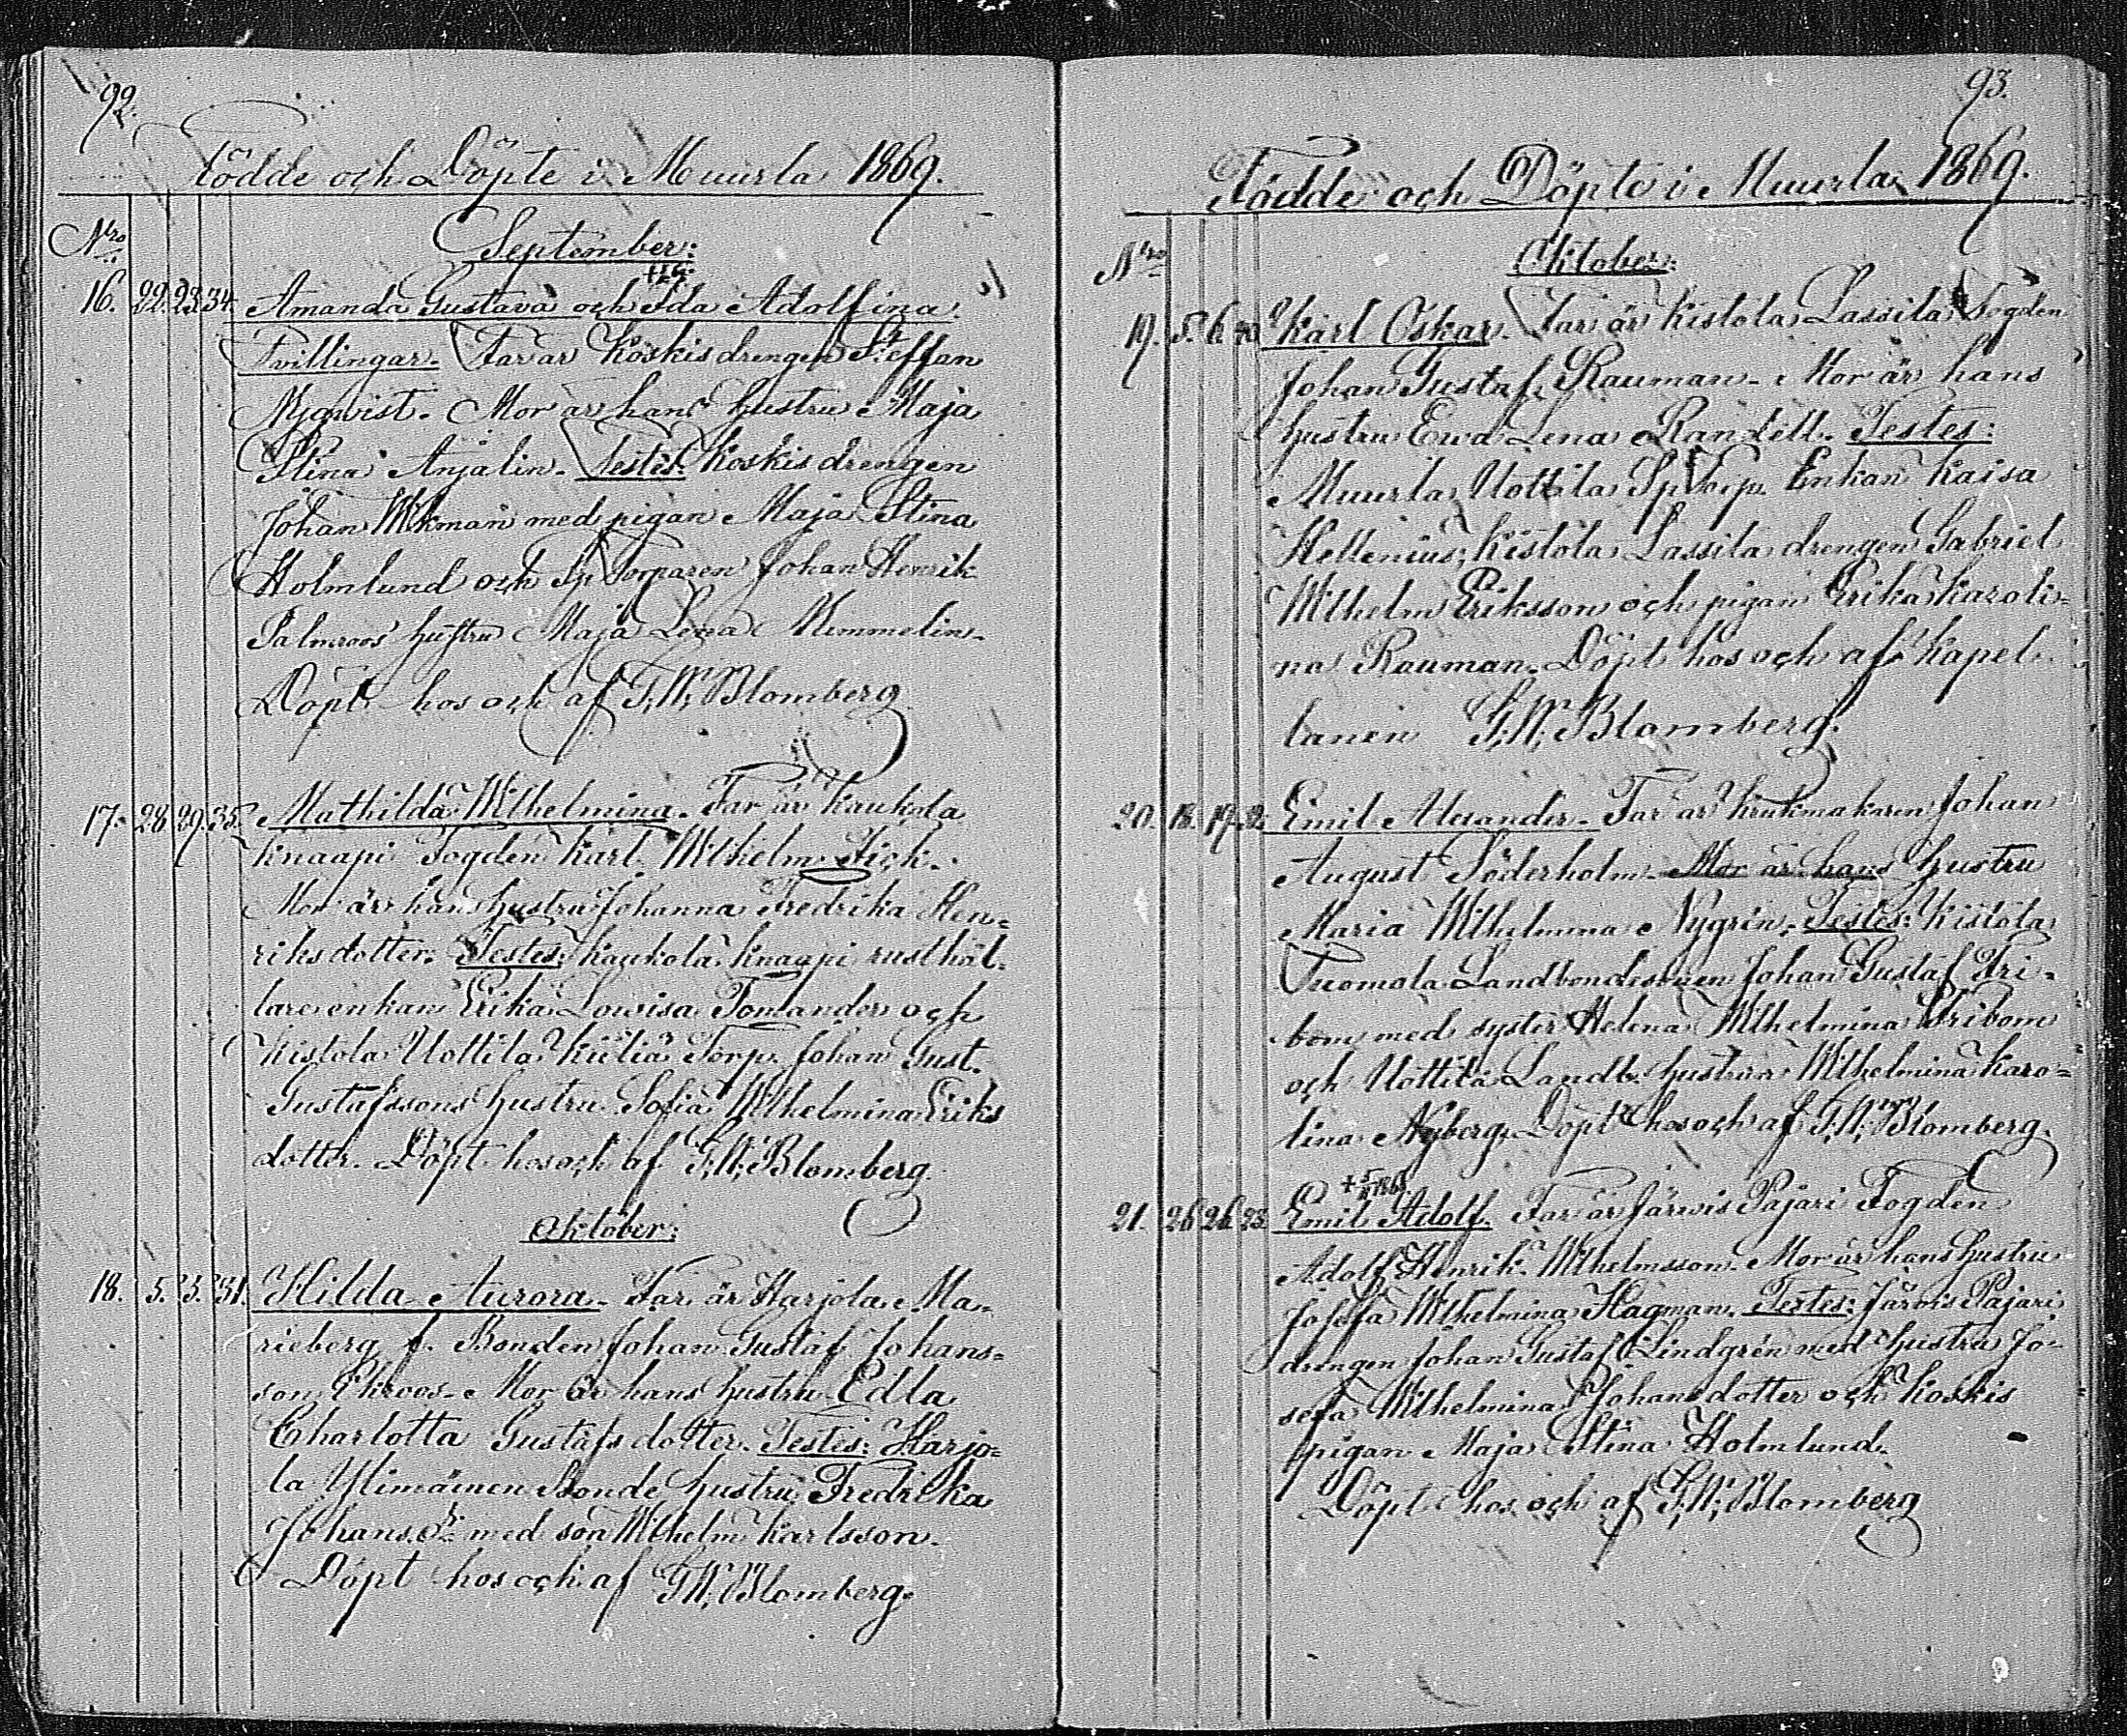 92.
Födde och Döpte i Muurla 1869.
Nro
September:
16. 22. 23. 34. Amanda Gustava och Ida Adolfina.
Tvillingar. Far är Koskis drengen Steffan
Myqvist. Mor är hans hustru Maja
Stina Anjalin. Testes: Koskis drengen
Johan Wikman med pigan Maja Stina
Holmlund och Sp Torparen Johan Henrik
Palmroos hustru Maja Lena Memmelin.
Döpt hos och af G; W; Blomberg
17. 28. 29. 35. Mathilda Wilhelmina. Far är Kaukola
Knaapi Fogden Karl Wilhelm Fick.
Mor är hans hustru Johanna Fredrika Hen=
riksdotter. Testes: Kaukola Knaapi rusthål-
lare enkan Erika Lovisa Tomander och
Kistola Uottila Kieliä Torp. Johan Gust.
Gustafssons hustru Sofia Wilhelmina Eriks
dotter. Döpt hos och af G; W; Blomberg.
Oktober:
18. 5. 5. 31. Hilda Aurora. Far är Harjola Ma-
rieberg f. Bonden Johan Gustaf Johans=
son Ekroos. Mor är hans hustru Edla
Charlotta Gustafsdotter. Testes: Harjo=
la Ylimäinen Bonde hustru Fredrika
Johans.dr med son Wilhelm Karlsson.
Döpt hos och af G; W; Blomberg.
93.
Födde och Döpte i Muurla 1869.
Nro
Oktober:
19. 5. 6. Karl Oskar. Far är Kistola Lassila Fogden
Johan Gustaf Rauman. Mor är hans
hustru Ewa Lena Randell. Testes:
Muurla Uottila Sp Torp. Enkan Kaisa
Hellenius; Kistola Lassila drengen Gabriel
Wilhelm Eriksson och pigan Erika Karoli=
na Rauman. Döpt hos och af Kapel-
lanen G; W; Blomberg.
20. 18. 19. Emil Alexander. Far är Krukmakaren Johan
August Söderholm. Mor är hans hustru
Maria Wilhelmina Nygrén. Testes: Kistola
Tuomola Landbondesonen Johan Gustaf Fri-
bom med syster Helena Wilhelmina Fribom
och Uottila Landb. hustrun Wilhelmina Karo=
lina Nyberg. Döpt hos och af G; W; Blomberg.
21. 26. 26. 23. Emil Adolf. Far är Järvis Pajari Fogden
Adolf Henrik Wilhelmsson. Mor är hans hustru
Josefa Wilhelmina Hagman. Testes: Järvis Pajari
drengen Johan Gustaf Lindgrén med hustru Jo-
sefa Wilhelmina Johansdotter och Koskis
pigan Maja Stina Holmlund.
Döpt hos och af G; W; Blomberg